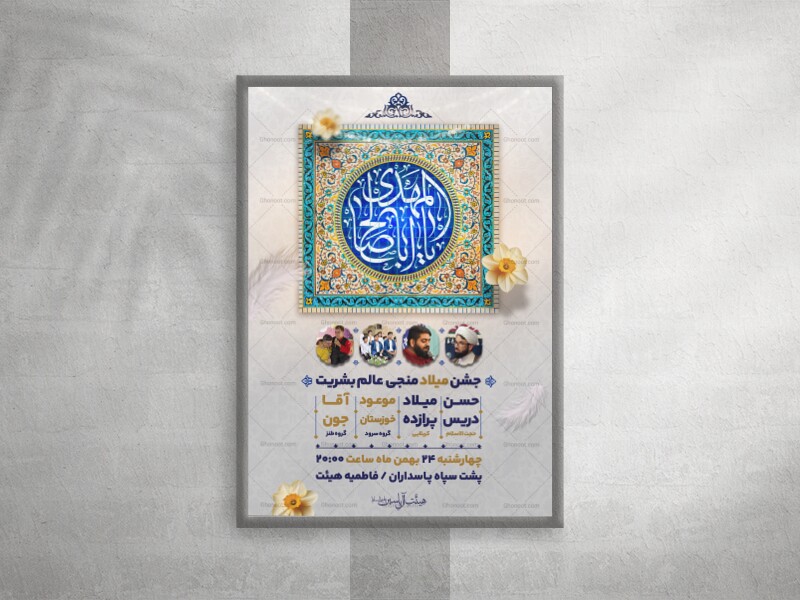 المهدی
یا اباصالح
جشن میلاد منجی عالم بشریت
حسن میلاد موعود آقا
دریس پرازده خوزستان جون
حجت الاسلام کربلایی گروه سرود گروه طنز
چهارشنبه ۲۴ بهمن ماه ساعت ۲۰:۰۰
پشت سپاه پاسداران / فاطمیه هیئت
هیئت آل یاسین